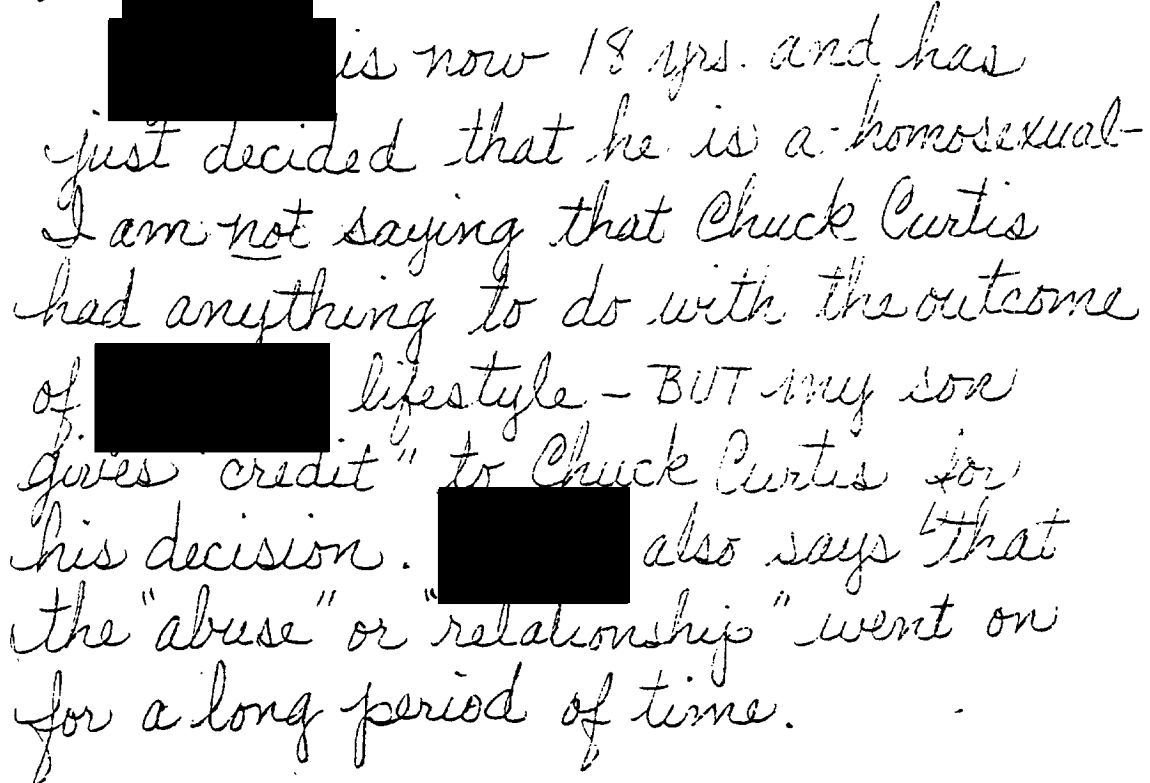 is now 18 yrs. and has
just decided that he is a homosexual-
I am not saying that Chuck Curtis
had anything to do with the outcome
of lifestyle - BUT my son
gives "credit" to Chuck Curtis for
his decision. also says "that
the "abuse" or "relationship" went on
for a long period of time.